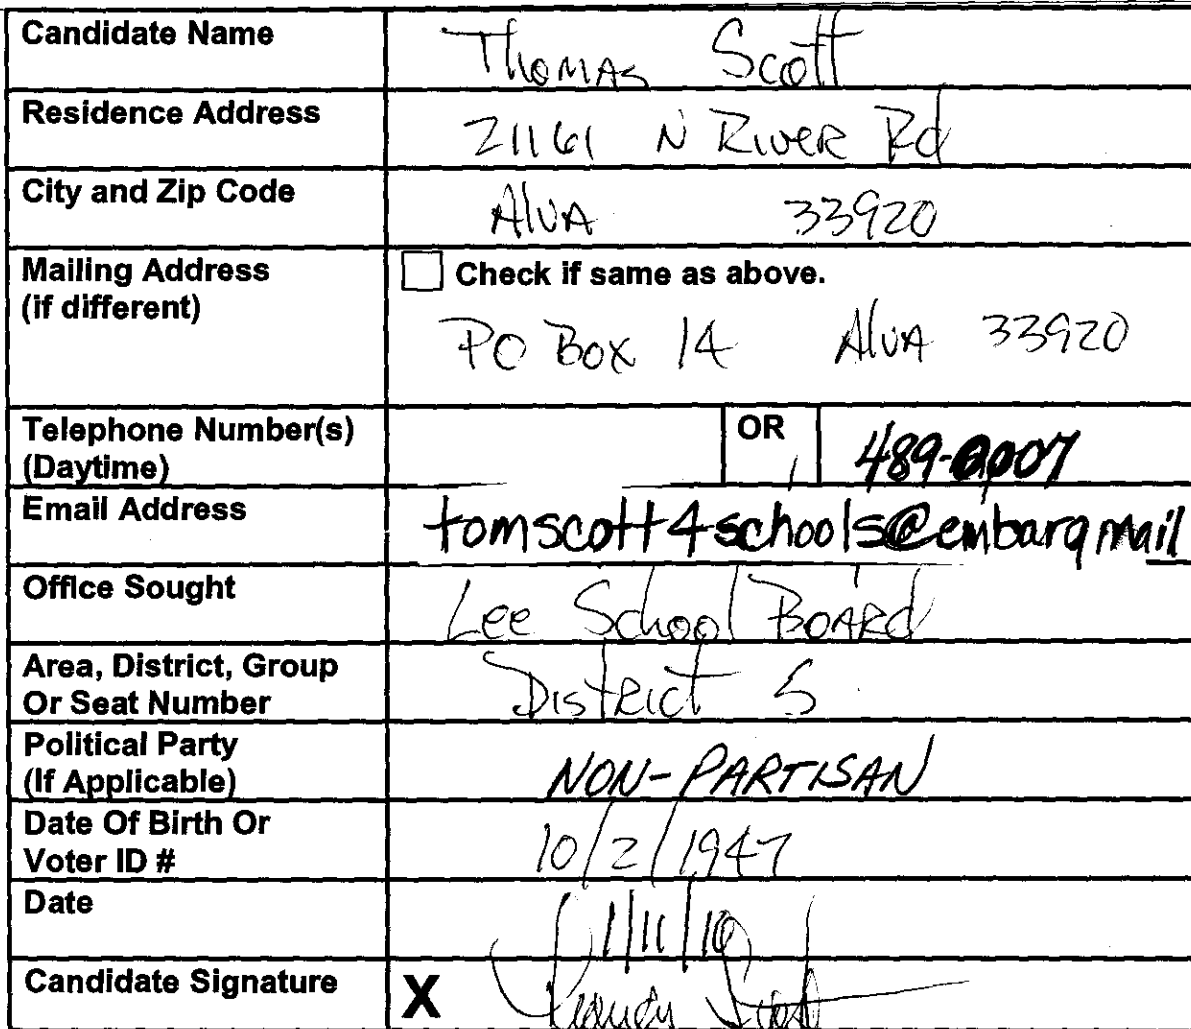 Candidate Name Thomas Scott
Residence Address 21161 N River Rd
City and Zip Code Alva 33920
Mailing Address Check if same as above.
(if different) PO Box 14 Alva 33920
Telephone Number(s) OR 489-
(Daytime)
Email Address tomscott4schools@embarqmail
Office Sought Lee School Board
Area, District, Group
Or Seat Number District 5
Political Party
(If Applicable) NON-PARTISAN
Date Of Birth Or
Voter ID # 10/2/1947
Date 1/11/10
Candidate Signature X